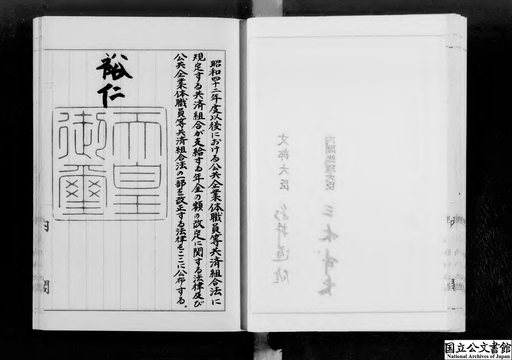 昭和四十二年度以後における公共企業体職員等共済組合法に
規定する共済組合が支給する年金の額の改定に関する法律及び
公共企業体職員等共済組合法の一部を改正する法律をここに公布する。
裕仁
天皇
御璽
内閣
内閣総理大臣
三木武夫
文部大臣
永井道雄
国立公文書館
National Archives of Japan